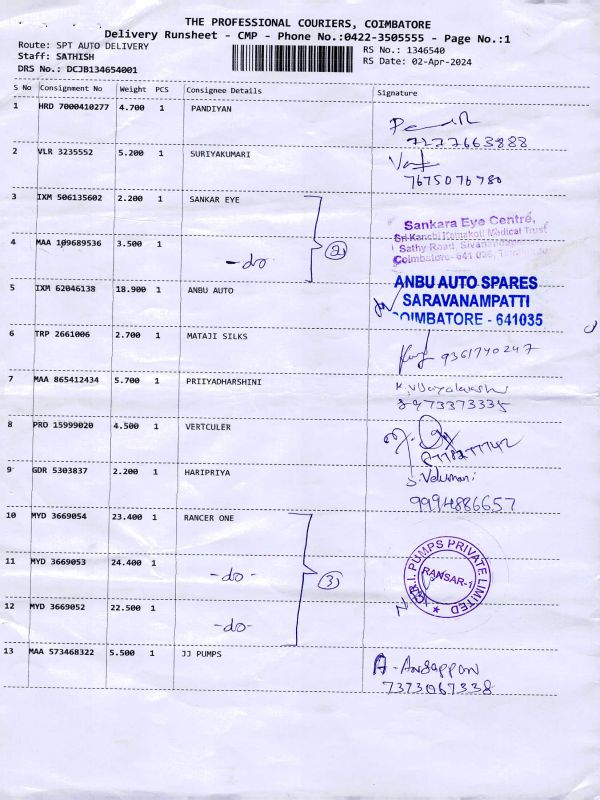 THE PROFESSIONAL COURIERS, COIMBATORE
Delivery Runsheet - CMP - Phone No.:0422-3505555 - Page No.:1
Route: SPT AUTO DELIVERY
RS No.: 1346540
Staff: SATHISH
RS Date: 02-Apr-2024
DRS No.: DCJB134654001
S No Consignment No Weight PCS Consignee Details Signature
1 HRD 7000410277 4.700 1 PANDIYAN
7277663888
2 VLR 3235552 5.200 1 SURIYAKUMARI
7675076780
3 IXM 506135602 2.200 1 SANKAR EYE
Sankara Eye Centre,
Sri Kanchi Kamakoti Medical Trust
Sathy Road,
Coimbatore- 641 035,
4 MAA 109689536 3.500 1 -do (2)
5 IXM 62046138 18.900 1 ANBU AUTO
ANBU AUTO SPARES
SARAVANAMPATTI
COIMBATORE - 641035
6 TRP 2661006 2.700 1 MATAJI SILKS
9361740247
7 MAA 865412434 5.700 1 PRIIYADHARSHINI
8973373335
8 PRO 15999020 4.500 1 VERTCULER
9 GDR 5303837 2.200 1 HARIPRIYA
S. Velumani
9994886657
10 MYD 3669054 23.400 1 RANCER ONE
11 MYD 3669053 24.400 1 -do- (3)
C.R.I. PUMPS PRIVATE LIMITED
RANSAR-1
12 MYD 3669052 22.500 1 -do-
13 MAA 573468322 5.500 1 JJ PUMPS
7373067338